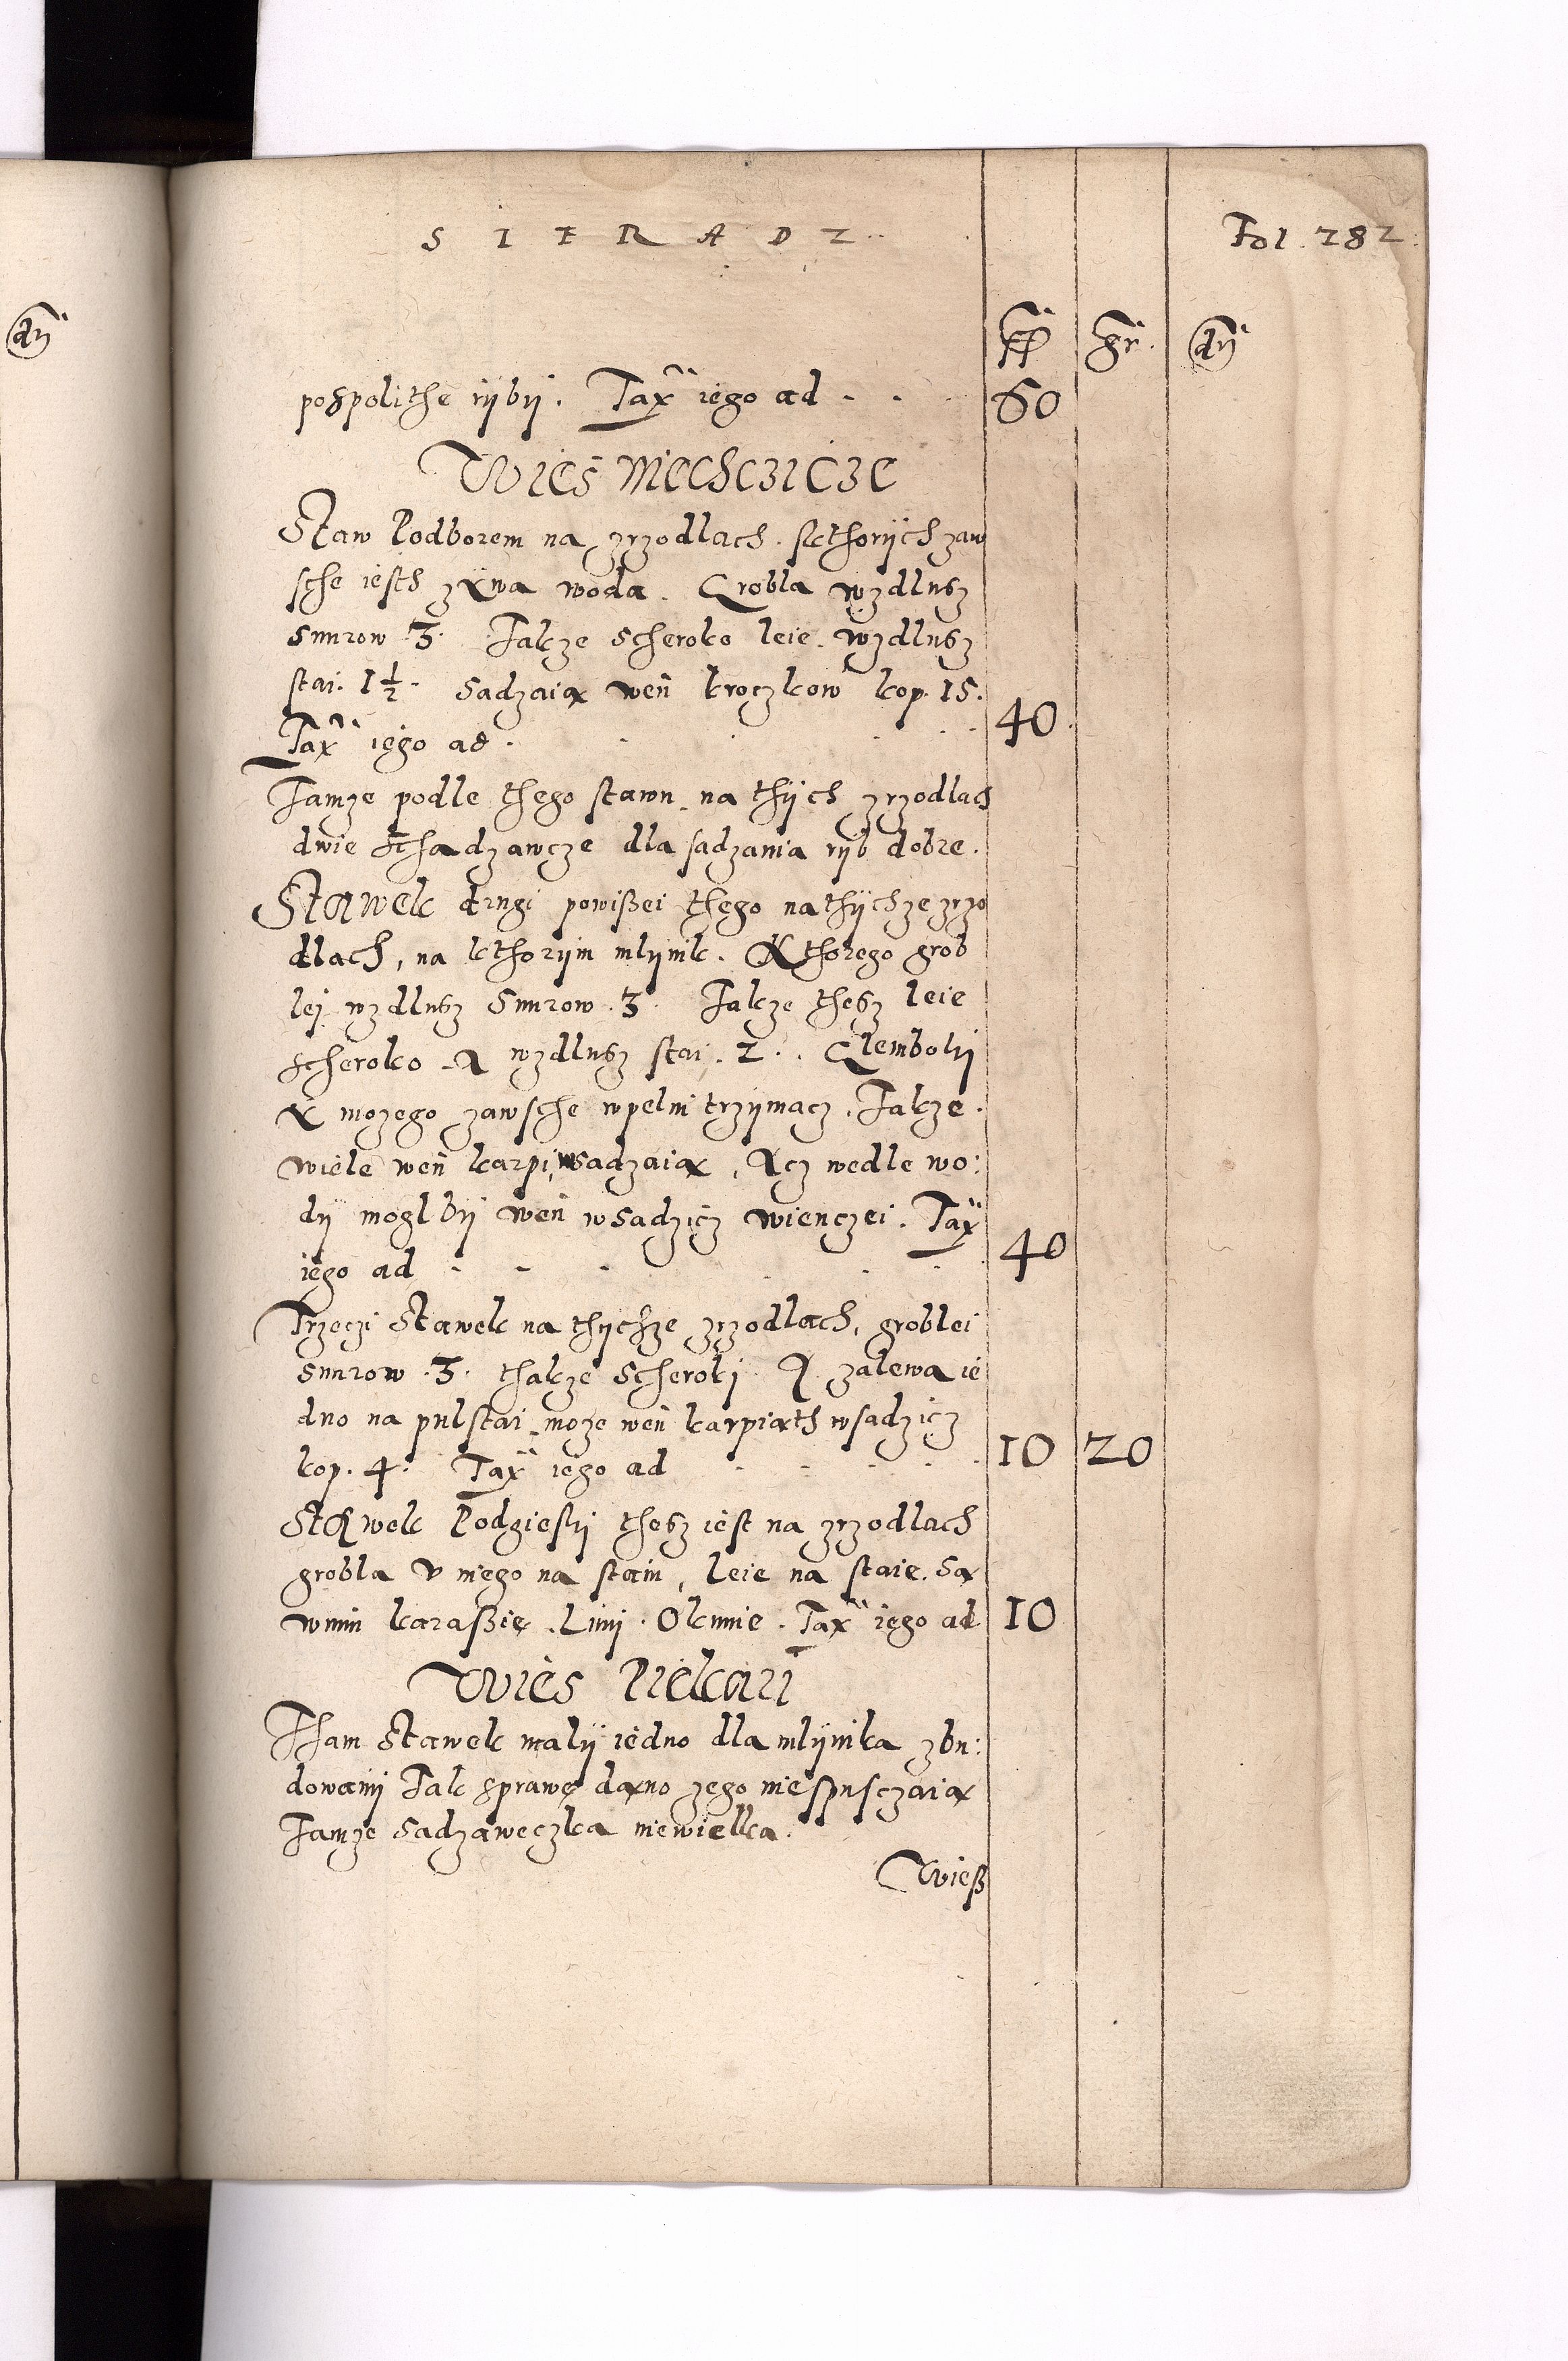 SIERADZ
Fol. 282
gr.
pospolithe rÿbÿ. Tax iego ad 60
Wieś Mechczicze
Staw Podborem na zrzodlach. skthorÿch zaw
sche iesth zÿwa woda. Grobla wzdlusz
snurow .3. Takze scheroko leie. wzdlusz
stai. 1½. Sadzaią weń kroczkow kop. 15.
Tax iego ad 40
Tamze podle thego stawu na thÿch zrzodlach
dwie sadzawcze dla sadzania rÿb dobre.
Stawek drugi powißei thego na thÿchze zrzo
dlach, na kthorÿm mlÿnik. Kthorego grob
lej wzdlusz snurow .3. Takze thesz leie
scheroko A wzdlusz stai .2. Glembokÿ
X mozego zawsche wpelni trzÿmacz. Takze.
wiele weń karpi wsadzaią. Acz wedle wo:
dÿ moglbÿ weń wsadzicz wienczei. Tax
iego ad 40
Trzeczi Stawek na thÿchze zrzodlach, groblei
snurow .3. thakze scheroki A zalewa ie
dno na pulstai moze weń karpiąth wsadzicz
kop. 4. Tax iego ad 10 20
Stawek thesz iest na zrzodlach
grobla v niego na staiu, leie na staie. Są
wnim karaßie. Linÿ. Okunie. Tax iego ad 10
Wieś Piekari
Tham Stawek malÿ iedno dla mlÿnika zbu:
dowanÿ Tak sprawę dawno zego niespusczaią
Tamze Sadzaweczka niewielka.
Wieß